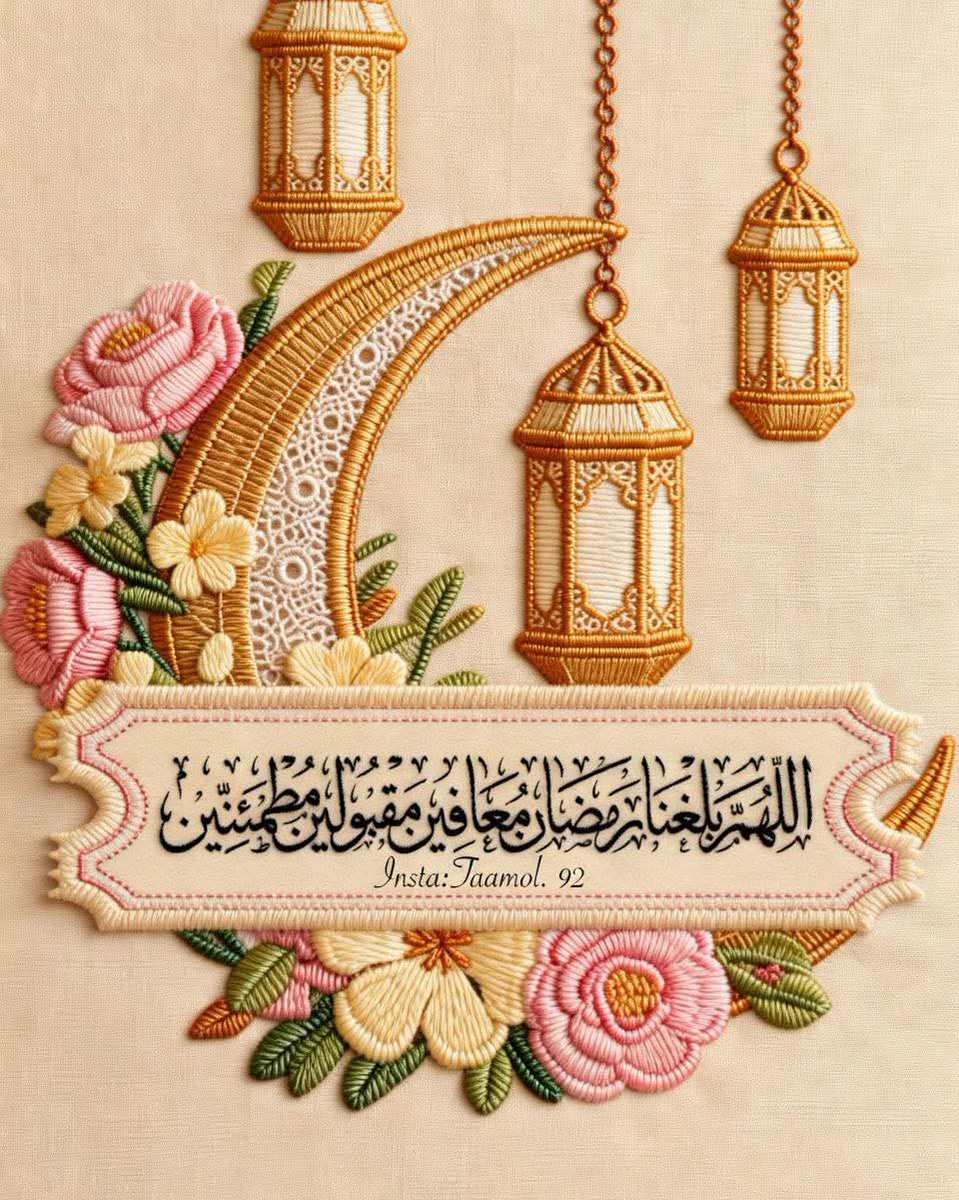 اللَّهُمَّ بَلِّغنَا رَمَضَان مُعَافِين مَقبُولِين مُطمَئنِّين
Insta:Taamol. 92